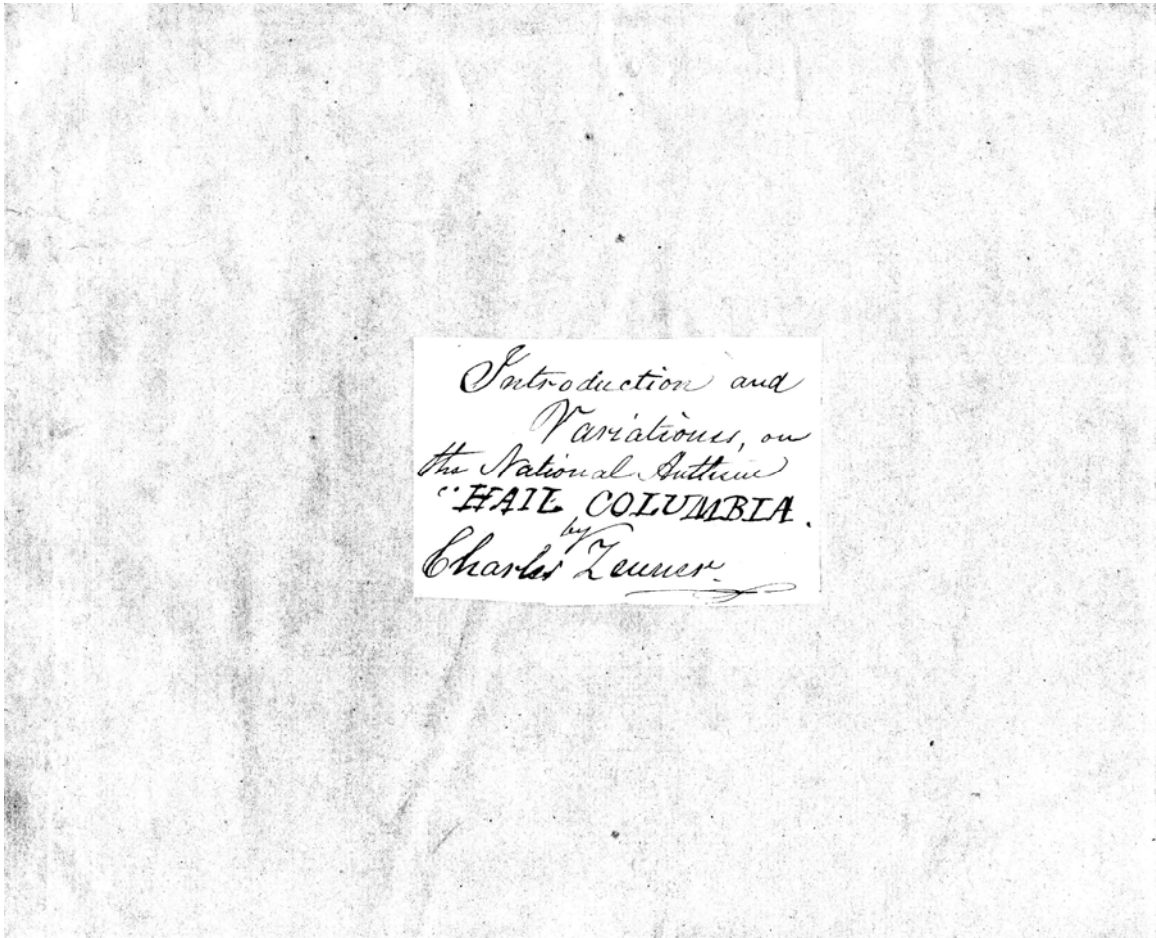 Introduction and
Variations, on
the National Anthem
"HAIL COLUMBIA.
by
Charles Zeuner.